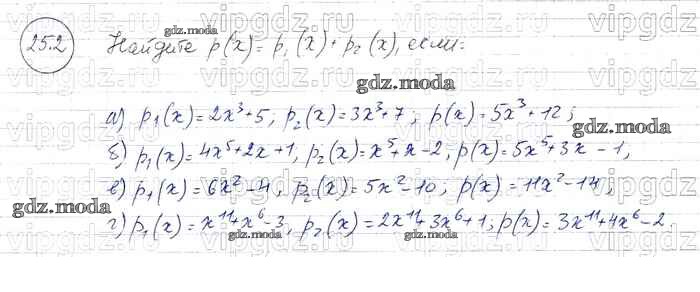 25.2 Найдите p(x) = p₁(x) + p₂(x), если:
а) p₁(x) = 2x³+5, p₂(x) = 3x³+7; p(x) = 5x³+12;
б) p₁(x) = 4x⁵+2x+1, p₂(x) = x⁵+x-2, p(x) = 5x⁵+3x-1,
в) p₁(x) = 6x²-4, p₂(x) = 5x²-10, p(x) = 11x²-14,
г) p₁(x) = x¹¹+x⁶-3, p₂(x) = 2x¹¹+3x⁶+1; p(x) = 3x¹¹+4x⁶-2.
gdz.moda
gdz.moda
gdz.moda
gdz.moda
gdz.moda
gdz.moda
gdz.moda
vipgdz